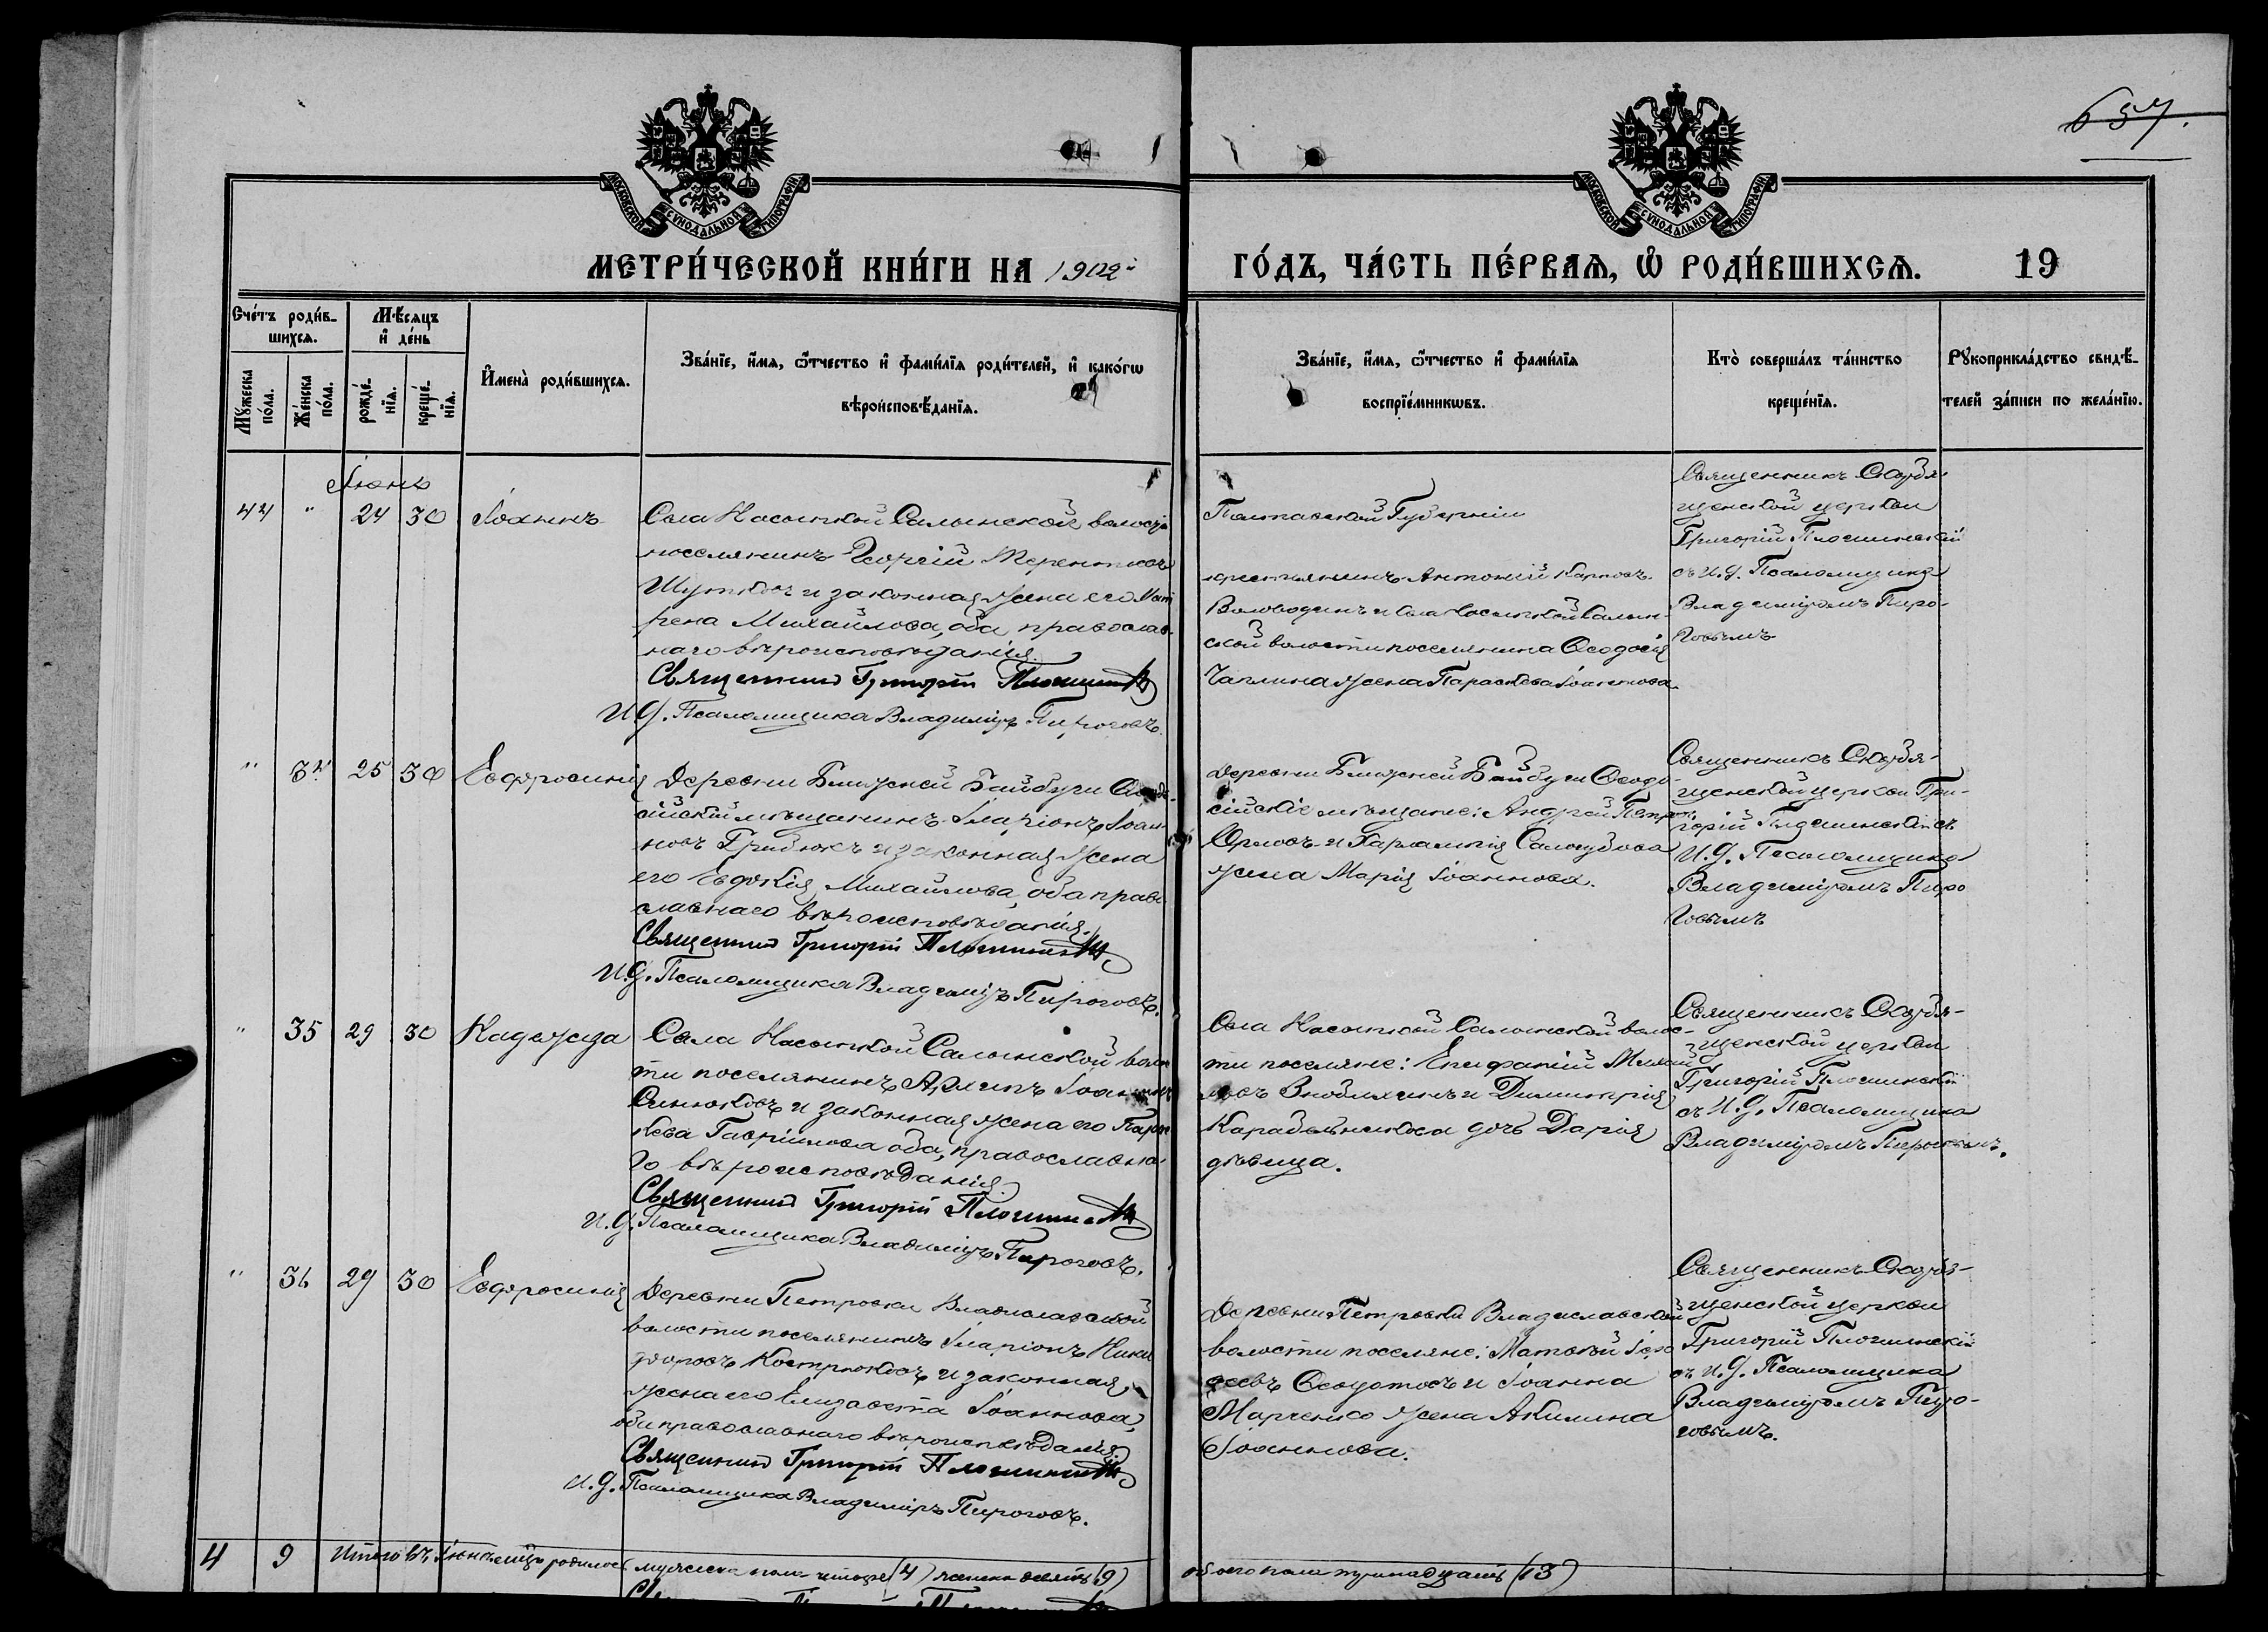 657.
МОСКОВСКОЙ СѴНОДАЛЬНОЙ ТИПОГРАФІИ
МОСКОВСКОЙ СѴНОДАЛЬНОЙ ТИПОГРАФІИ
МЕТРИ́ЧЕСКОЙ КНИ́ГИ НА 1902
ГО́ДЪ, ЧА́СТЬ ПЕ́РВАѦ, Ѡ РОДИ́ВШИХСѦ. 19
Сче́тъ роди́в-
шихсѧ.
Мꙋ́жеска по́ла.
Же́нска по́ла.
Мѣ́сѧцъ
и҆ де́нь
рожде́-
нїѧ.
креще́-
нїѧ.
И҆мена̀ роди́вшихсѧ.
Зва́нїе, и҆́мѧ, ѻ҆́тчество и҆ фами́лїѧ роди́телей, и҆ како́гѡ
вѣроисповѣ́данїѧ.
Зва́нїе, и҆́мѧ, ѻ҆́тчество и҆ фами́лїѧ
воспрїе́мникѡвъ.
Кто̀ соверша́лъ та́инство
креще́нїѧ.
Рꙋкоприкла́дство свидѣ́-
телей за́писи по жела́нїю.
Іюнь
44 " 24 30 Іоаннъ
Села Насыпкой Салынской волости
поселянинъ Георгій Терентіевъ
и законная жена его Мат
рена Михайлова, оба православ-
наго вѣроисповѣданія.
Священникъ Григорій Плошинскій
И.д. Псаломщика Владиміръ Пироговъ.
Полтавской Губерніи
крестьянинъ Антоній Карповъ
Володинъ и села Насыпкой Салын-
ской волости поселянина Ѳеодосія
Чаплина жена Параскева Іоаннова.
Священникъ Скорбя-
щенской церкви
Григорій Плошинскій
съ И.д. Псаломщика
Владиміромъ Пиро-
говымъ
" 34 25 30 Евфросинія
Деревни Ближней Байбуги Ѳеодо-
сійскій мѣщанинъ Иларіонъ Іоан-
новъ Грибюкъ и законная жена
его Евдокія Михайлова, оба право
славнаго вѣроисповѣданія.
Священникъ Григорій Плошинскій
И.д. Псаломщика Владиміръ Пироговъ.
Деревни Ближней Байбуги Ѳеодо-
сійскіе мѣщане: Андрей Петровъ
Орловъ и Харлампія Сологубова
жена Марія Іоаннова.
Священникъ Скорбя-
щенской церкви Гри-
горій Плошинскій съ
И.д. Псаломщика
Владиміромъ Пиро
говымъ
" 35 29 30 Надежда
Села Насыпкой Салынской волос
ти поселянинъ Архипъ Іоанновъ
Синюковъ и законная жена его Парас
кева Гавріилова оба, православна-
го вѣроисповѣданія.
Священникъ Григорій Плошинскій
И.д. Псаломщика Владиміръ Пироговъ.
Села Насыпкой Салынской волос-
ти поселяне: Епифаній Михай
ловъ и Димитрія
Карабельникова дочь Дарія
дѣвица.
Священникъ Скорбя-
щенской церкви
Григорій Плошинскій
съ И.д. Псаломщика
Владиміромъ Пироговымъ.
" 36 29 30 Евфросинія
Деревни Петровки Владиславской
волости поселянинъ Иларіонъ Ники
форовъ Костюковъ и законная
жена его Елизавета Іоаннова,
оба православнаго вѣроисповѣданія.
Священникъ Григорій Плошинскій
И.д. Псаломщика Владиміръ Пироговъ.
Деревни Петровки Владиславской
волости поселяне: Матвей
Ѳедотовъ и Іоанна
Марченко жена Акилина
Іоаннова.
Священникъ Скорбя-
щенской церкви
Григорій Плошинскій
съ И.д. Псаломщика
Владиміромъ Пиро-
говымъ.
4 9 Итого въ Іюнѣ м-цѣ родилось мужеска пола четыре (4) женска девять (9)
обоего пола тринадцать (13)